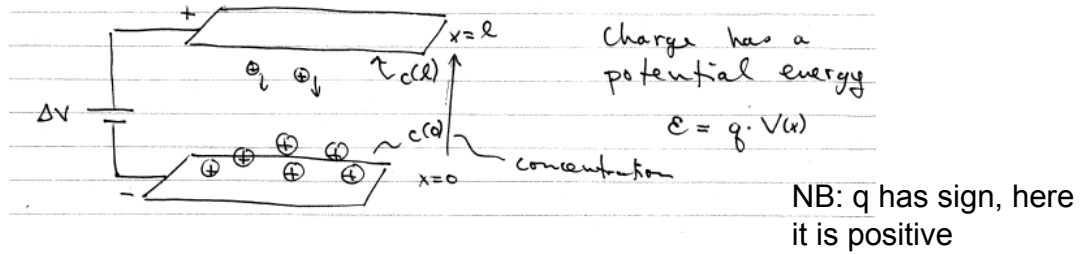 +
x=l
Charge has a
c(l)
potential energy
⊕ ⊕
ΔV
ε = q·V(x)
c(0)
⊕ ⊕ ⊕ ⊕
concentration
⊕ ⊕ ⊕
x=0
-
NB: q has sign, here
it is positive